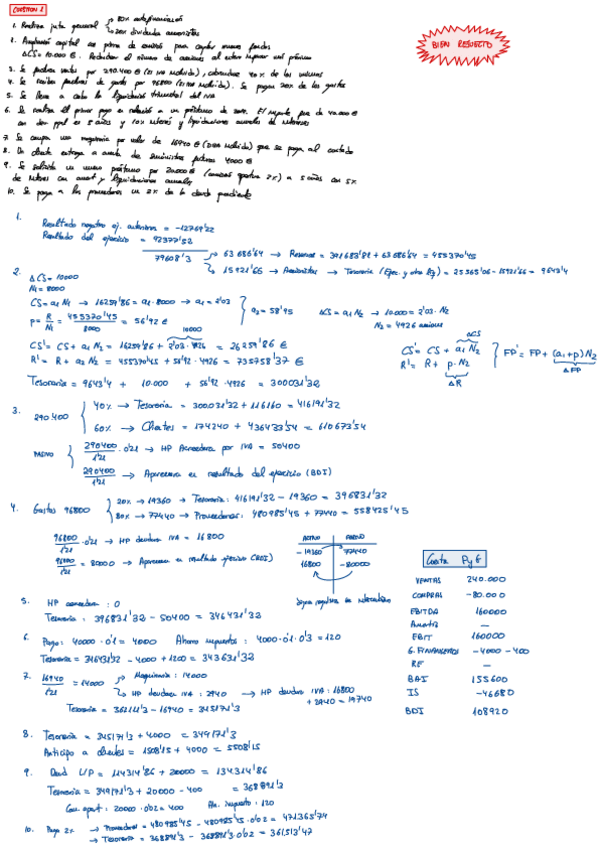 CUESTION 2
1. Realiza junta general 80% autofinanciación
20% dividendo accionistas
2. Ampliación capital con prima de emisión para captar nuevos fondos
ΔCS = 10.000 €.
3. Se factura ventas por 290.400 € (21 IVA incluido), cobrándose 40% de las mismas
4. Se reciben facturas de gastos por 96800 (21 IVA incluido). Se pagan 20% de los gastos
5. Se lleva a cabo la liquidación trimestral del IVA
6. Se realiza el primer pago en relación a un préstamo de
7. Se compra una maquinaria por valor de 16940 € (21 IVA incluido) que se paga al contado
8. Un cliente entrega a cuenta de suministros futuros 4000 €
9. Se solicita un nuevo préstamo por 20.000 € (comisión apertura 2%) a 5 años con 5%
de interés con amort y liquidaciones anuales
10. Se paga a los proveedores un 2% de la deuda pendiente
BIEN RESUELTO
1.
Resultado negativo ej. anteriores = -12769'22
Resultado del ejercicio = 92377'52
79608'3
63686'64 → Reservas = 391683'81 + 63686'64 = 455370'45
15921'66 → Accionistas → Tesorería = 25565'06 - 15921'66 = 9643'4
2.
ΔCS = 10000
N1 = 8000
CS = a1 N1 → 16259'86 = a1 · 8000 → a1 = 2'03
p = R/N1 = 455370'45/8000 = 56'92 €
a2 = 58'95
ΔCS = a1 N2 → 10.000 = 2'03 · N2
N2 = 4926 acciones
10000
CS' = CS + a1 N2 = 16259'86 + 2'03 · 4926 = 26259'86 €
R' = R + p N2 = 455370'45 + 56'92 · 4926 = 735758'37 €
ΔCS
CS' = CS + a1 N2
R' = R + p · N2
ΔR
FP' = FP + (a1+p) N2
ΔFP
Tesorería = 9643'4 + 10.000 + 56'92 · 4926 = 300031'32
3.
290400
40% → Tesorería = 300.031'32 + 116160 = 416191'32
60% → Clientes = 174240 + 436433'54 = 610673'54
PASIVO
290400/1'21 · 0'21 → HP Acreedora por IVA = 50400
290400/1'21 → Aparecerá en resultado del ejercicio (BDI)
4. Gastos 96800
20% → 19360 → Tesorería: 416191'32 - 19360 = 396831'32
80% → 77440 → Proveedores: 480985'45 + 77440 = 558425'45
96800/1'21 · 0'21 → HP deudora IVA = 16800
96800/1'21 = 80000 → Aparecerá en resultado ejercicio (BDI)
ACTIVO PASIVO
-19360 77440
16800 -80000
Cuenta PyG
VENTAS 240.000
COMPRAS -80.000
EBITDA 160000
Amortiz —
EBIT 160000
G. FINANCIEROS -4000 -400
RE —
BAI 155600
IS -46680
BDI 108920
5. HP acreedora: 0
Tesorería: 396831'32 - 50400 = 346431'32
6. Pago: 40000 · 0'1 = 4000 Ahorro impuestos: 4000 · 0'1 · 0'3 = 120
Tesorería = 346431'32 - 4000 + 1200 = 343631'32
7. 16940/1'21 = 14000
Maquinaria: 14000
HP deudora IVA: 2940 → HP deudora IVA: 16800
+ 2940 = 19740
Tesorería = 362111'3 - 16940 = 345171'3
8. Tesorería = 345171'3 + 4000 = 349171'3
Anticipo a clientes = 1508'15 + 4000 = 5508'15
9. Deud L/P = 114314'86 + 20000 = 134314'86
Tesorería = 349171'3 + 20000 - 400 = 368891'3
Com. apert: 20000 · 0'02 = 400 Ah. impuesto: 120
10. Paga 2% → Proveedores = 480985'45 - 480985'45 · 0'02 = 471365'74
→ Tesorería = 368891'3 - 368891'3 · 0'02 = 361513'47